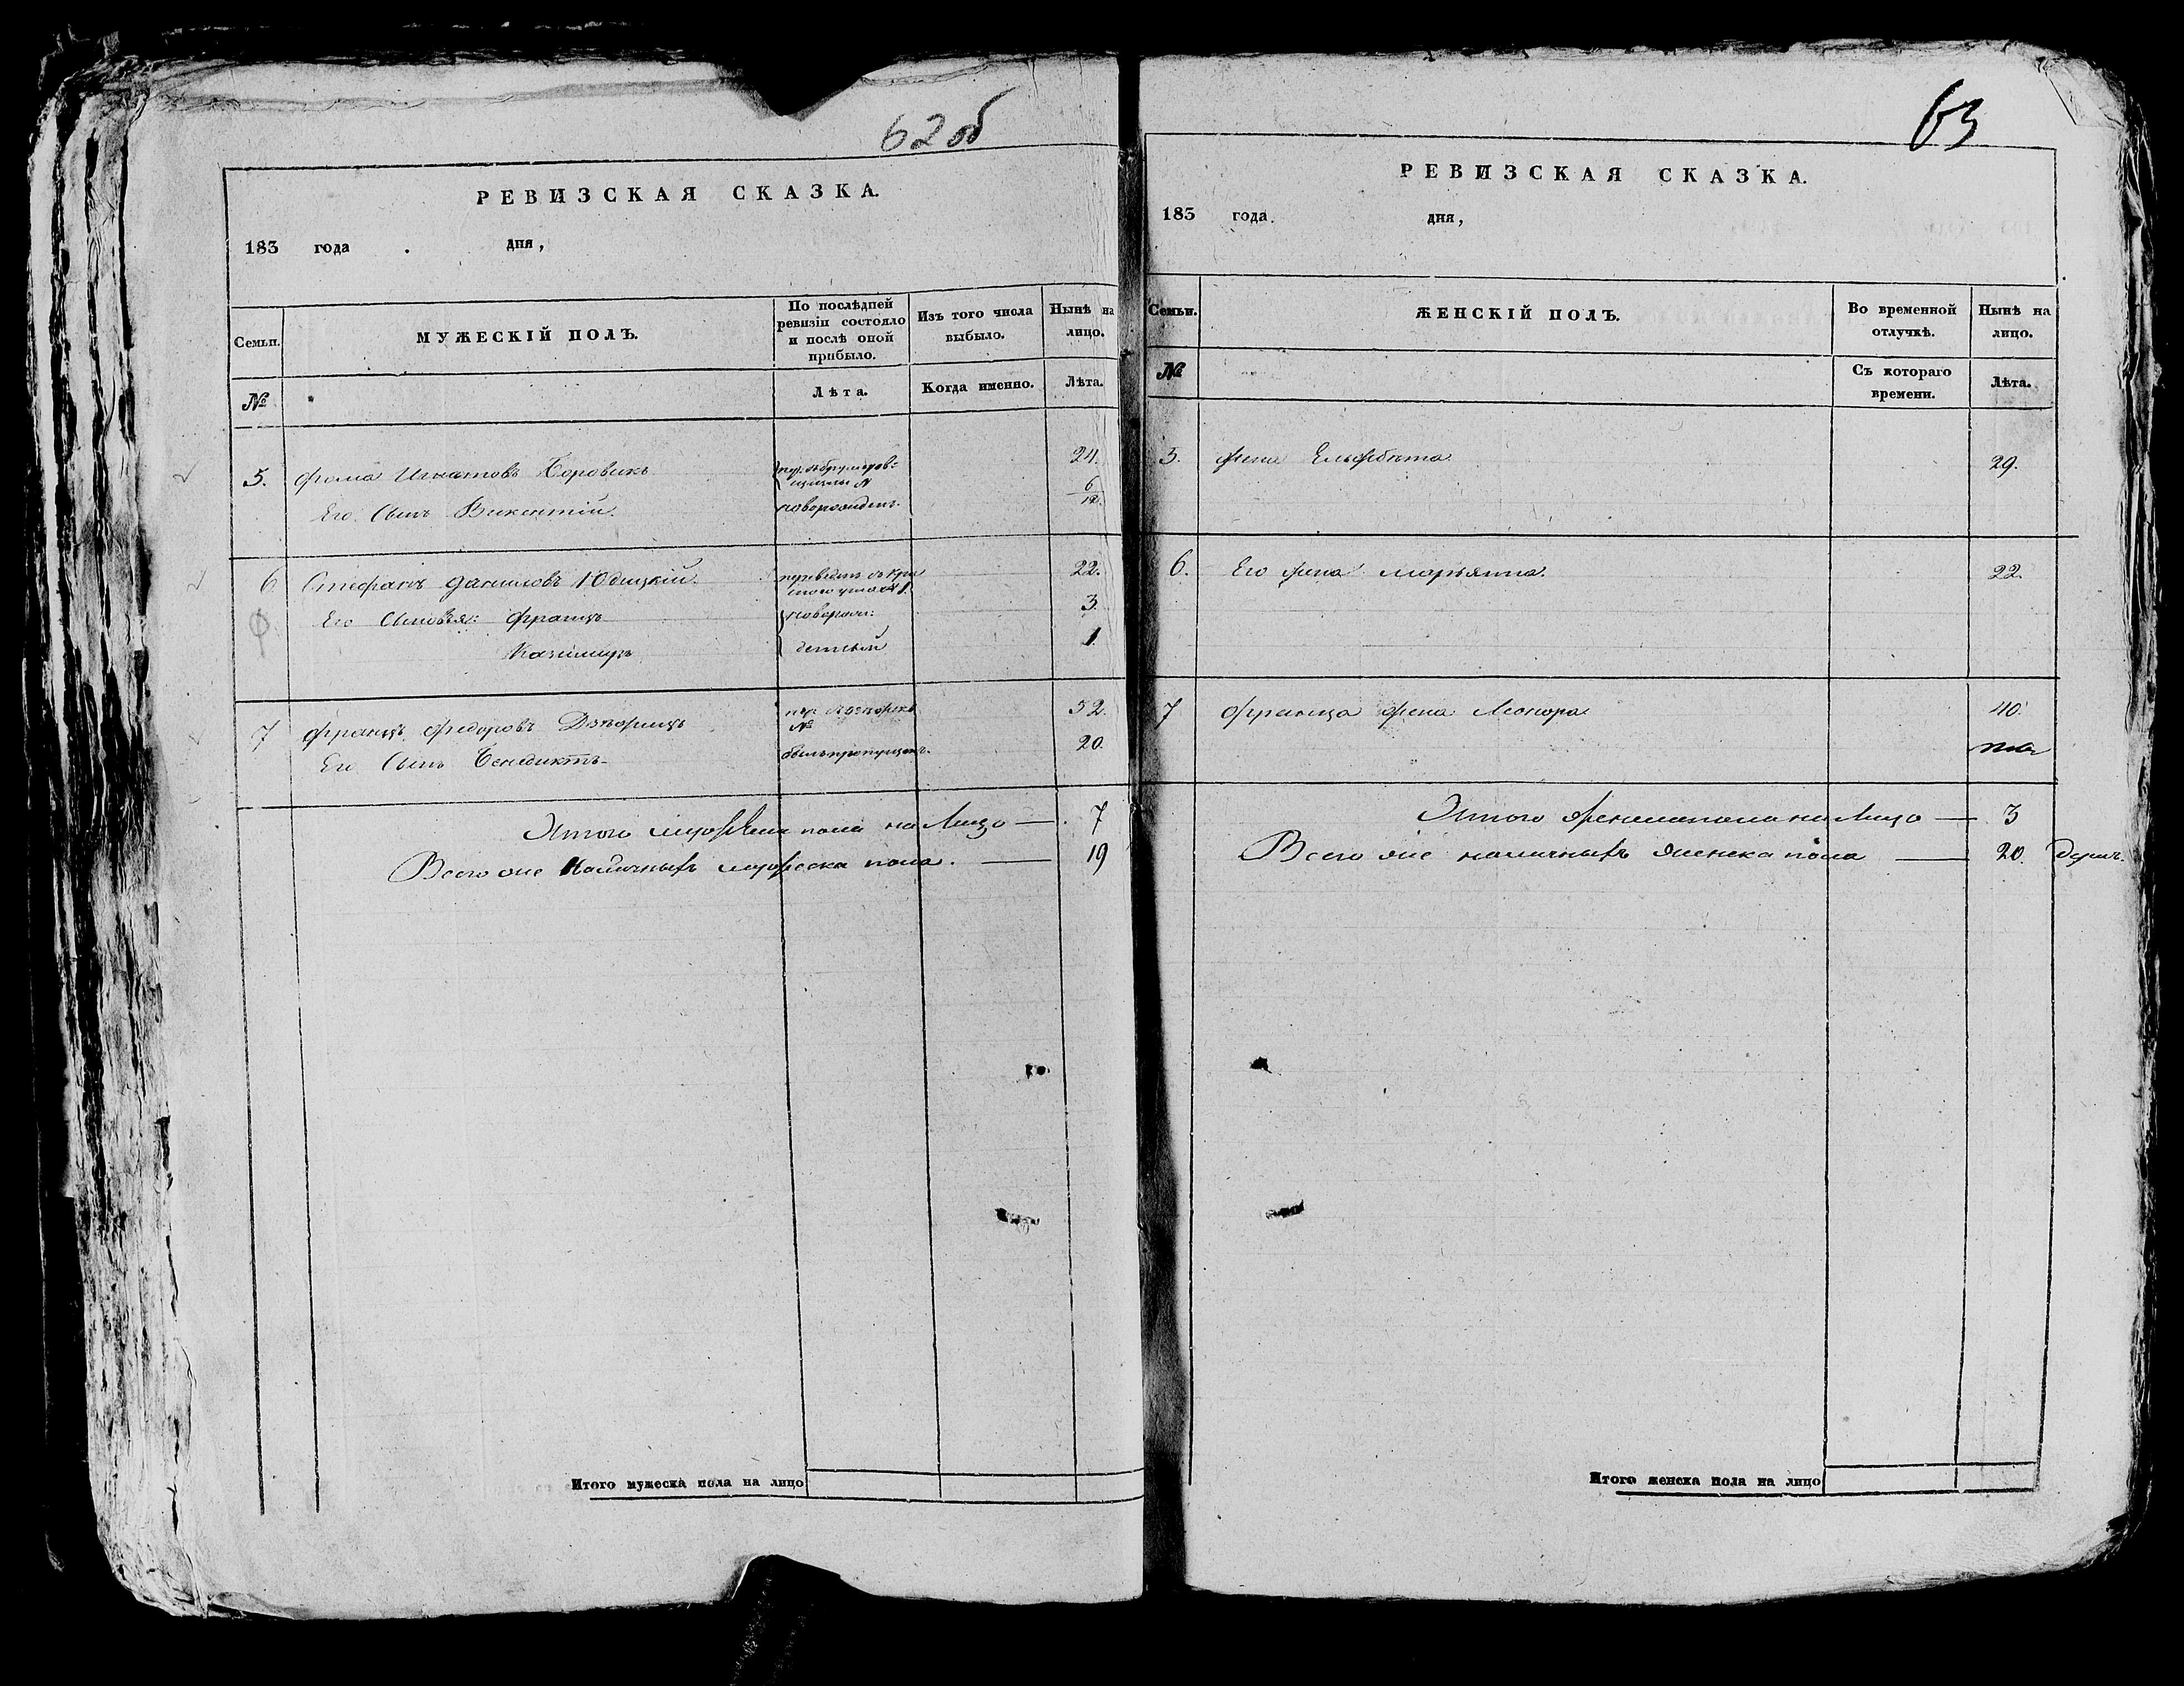 62 об
РЕВИЗСКАЯ СКАЗКА.
183 года . дня,
Семьи.
МУЖЕСКІЙ ПОЛЪ.
По послѣдней ревизіи состояло и послѣ оной прибыло.
Изъ того числа выбыло.
Нынѣ на лицо.
№
Лѣта.
Когда именно.
Лѣта.
5. Фома Игнатовъ Боровикъ 24.
Его Сынъ Викентій. новорожден. 6/12.
6 Стефанъ Даниловъ Юдицкій. 22.
Его Сыновья: Францъ новорож: 3.
Казимиръ 1.
7 Францъ Федоровъ 52.
№
Его Сынъ Бенедиктъ былъ пропущен. 20.
Итого мужеска пола на Лицо — 7
Всего же Наличныхъ мужеска пола. — 19
Итого мужеска пола на лицо
63
РЕВИЗСКАЯ СКАЗКА.
183 года. дня,
Семьи.
ЖЕНСКІЙ ПОЛЪ.
Во временной отлучкѣ.
Нынѣ на лицо.
№
Съ котораго времени.
Лѣта.
5. жена 29.
6. Его жена Марьянна. 22.
7 Франца жена Леонора 40.
Итого женска пола на Лицо — 3
Всего же наличныхъ женска пола — 20. душъ.
Итого женска пола на лицо